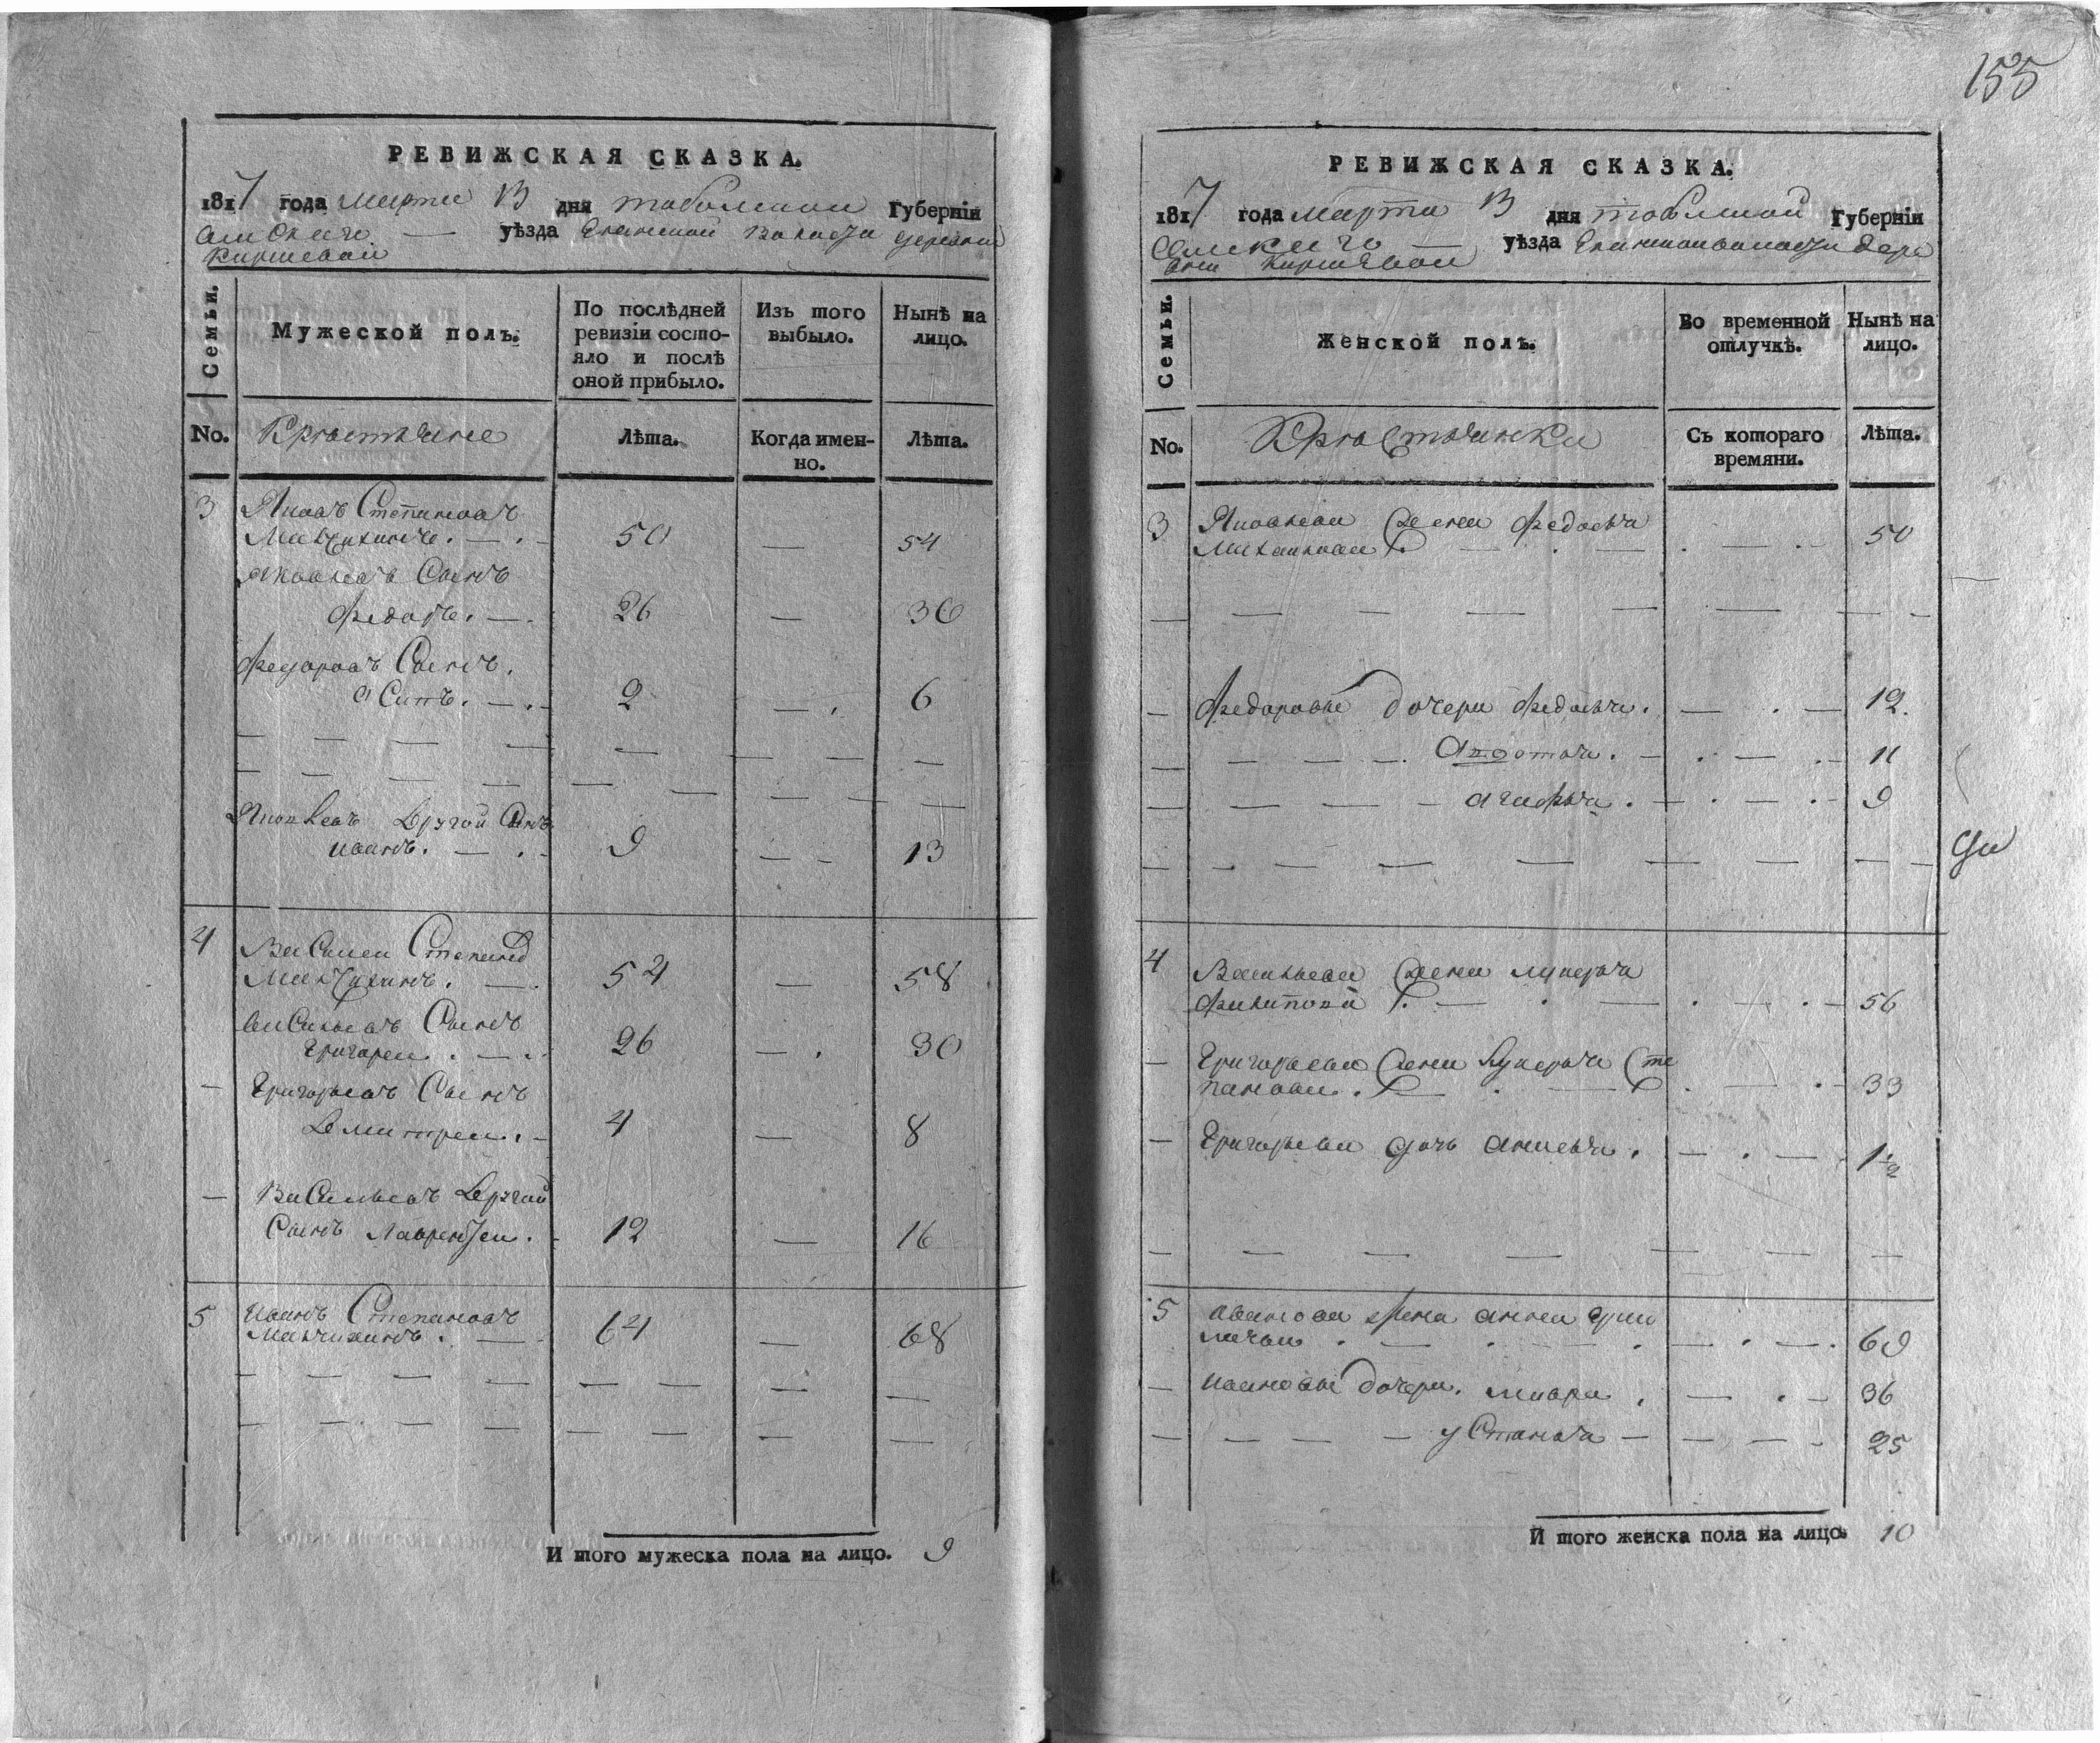 155
РЕВИЖСКАЯ СКАЗКА.
1817 года Марта 13 дня тобольской Губерніи
Омскаго — уѣзда Еланской волости деревни
Киршевой
Семьи.
Мужеской полъ.
По послѣдней
ревизіи состо-
яло и послѣ
оной прибыло.
Изъ того
выбыло.
Нынѣ на
лицо.
No.
Крестьяне
Лѣта.
Когда имен-
но.
Лѣта.
3 Яковъ Степановъ
50 — 54
Яковлевъ Сынъ
Федоръ. — 26 — 30
Федоровъ Сынъ.
Осипъ. — 2 — 6
Яковлевъ Другой Сынъ
иванъ. — 9 — 13
4 Василеи Степановъ
54 — 58
васильевъ Сынъ
Григореи. — 26 — 30
— Григорьевъ Сынъ
Демитреи. — 4 — 8
— Васильевъ Другой
Сынъ Лаврентеи. 12 — 16
5 Иванъ Степановъ
64 — 68
И того мужеска пола на лицо. 9
РЕВИЖСКАЯ СКАЗКА.
1817 года Марта 13 дня тоболской Губерніи
Омскаго — уѣзда Еланской волости дере
вни Киршевой
Семьи.
Женской полъ.
Во временной
отлучкѣ.
Нынѣ на
лицо.
No.
Крестьянки
Съ котораго
времяни.
Лѣта.
3 Яковлева Жена Федосья
Михаилова — 50
— Федоровы дочери Федосья. — 12.
11
агафья. — 9
4 Васильева Жена лукерья
Филипова — 56
— Григорьева Жена Лукерья Сте
панова. — 33
— Григорьева дочь 1 1/2
5 иванова жена анна
69
— ивановы дочери. мавра. — 36
устинья — 25
И того женска пола на лицо 10